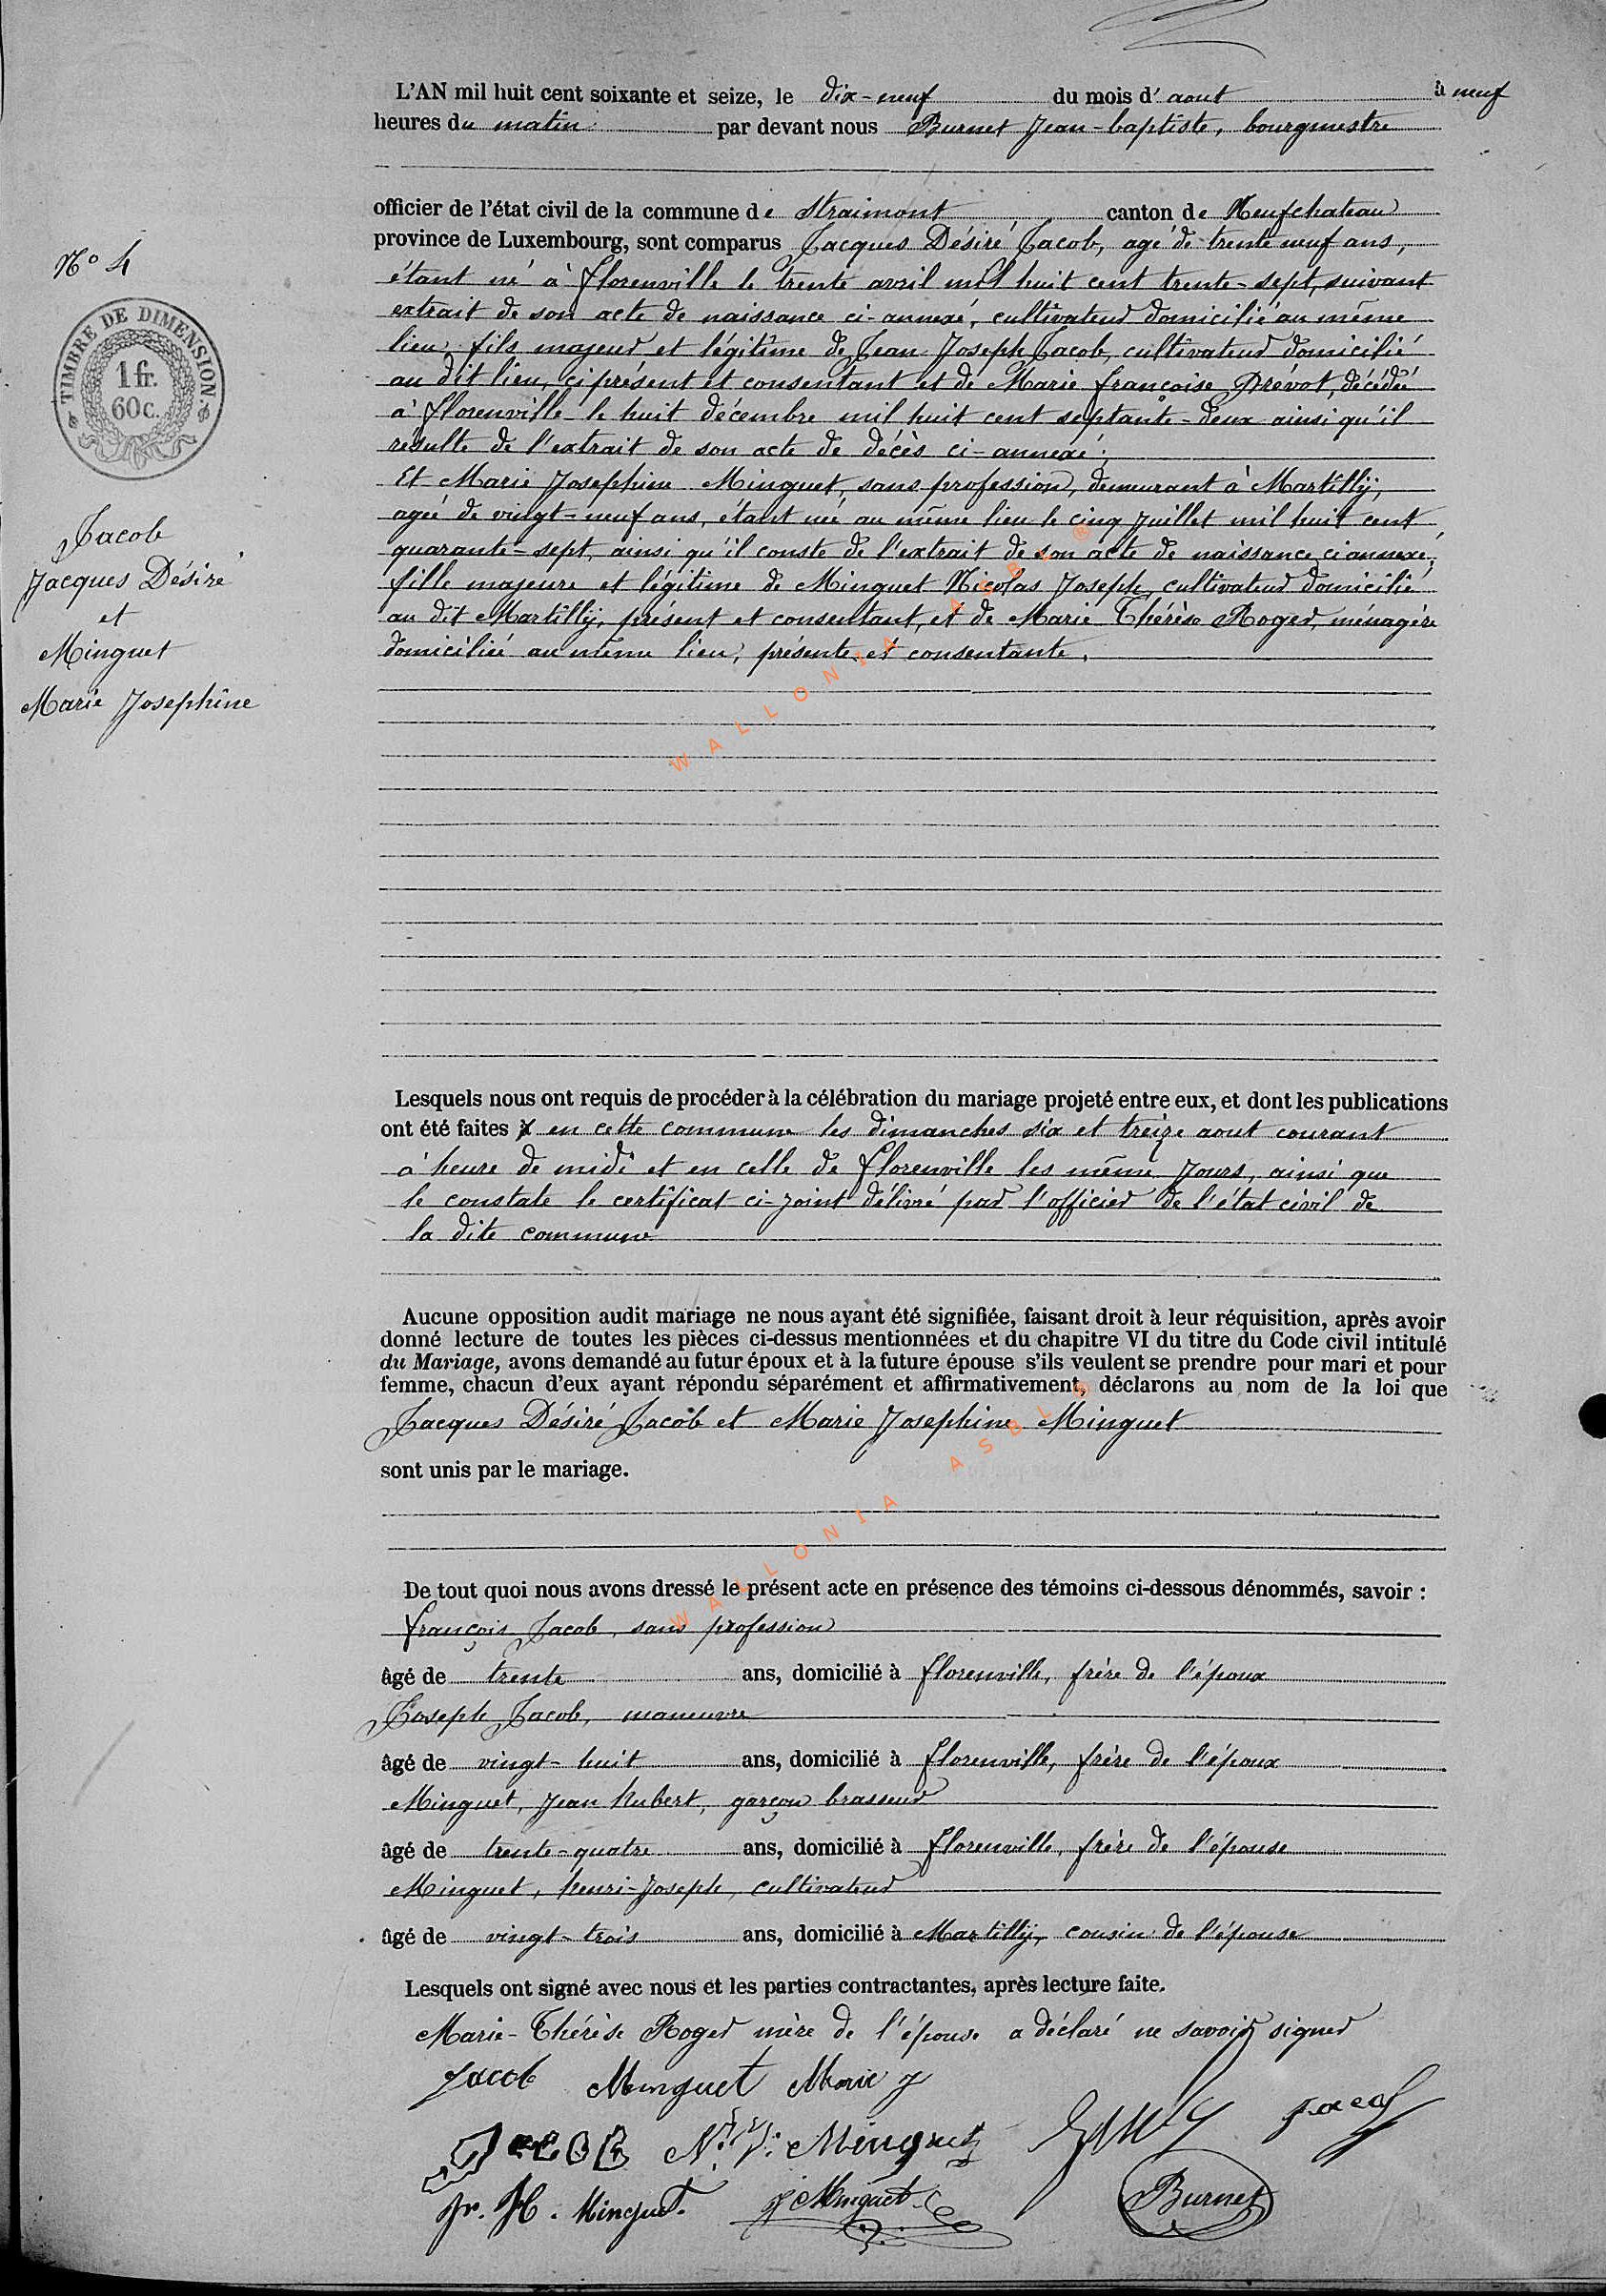 L'AN mil huit cent soixante et seize, le dix-neuf du mois d'aout à neuf
heures du matin par devant nous Burnet Jean-baptiste, bourgmestre
officier de l'état civil de la commune de Straimont canton de Neufchateau
province de Luxembourg, sont comparus Jacques Désiré Jacob, agé de trente neuf ans,
étant né à florenville le trente avril mil huit cent trente-sept, suivant
extrait de son acte de naissance ci-annexé, cultivateur domicilié au même
lieu fils majeur et légitime de Jean Joseph Jacob, cultivateur domicilié
au dit lieu, ci présent et consentant et de Marie françoise Prévot, décédée
à florenville le huit décembre mil huit cent septante-deux ainsi qu'il
résulte de l'extrait de son acte de décès ci-annexé;
Et Marie Josephine Minguet, sans profession, demeurant à Martilly,
agée de vingt-neuf ans, étant née au même lieu le cinq Juillet mil huit cent
quarante-sept, ainsi qu'il conste de l'extrait de son acte de naissance ci annexé;
fille majeure et légitime de Minguet Nicolas Joseph, cultivateur domicilié
au dit Martilly, présent et consentant, et de Marie Thérèse Roger, ménagère
domiciliée au même lieu, présente et consentante.
N° 4
TIMBRE DE DIMENSION
1 fr.
60 c.
Jacob
Jacques Désiré
et
Minguet
Marie Josephine
WALLONIA ASBL ®
Lesquels nous ont requis de procéder à la célébration du mariage projeté entre eux, et dont les publications
ont été faites en cette commune les dimanches six et treize aout courant
à heure de midi et en celle de florenville les même Jours, ainsi que
le constate le certificat ci-joint délivré par l'officier de l'état civil de
la dite commune
Aucune opposition audit mariage ne nous ayant été signifiée, faisant droit à leur réquisition, après avoir
donné lecture de toutes les pièces ci-dessus mentionnées et du chapitre VI du titre du Code civil intitulé
du Mariage, avons demandé au futur époux et à la future épouse s'ils veulent se prendre pour mari et pour
femme, chacun d'eux ayant répondu séparément et affirmativement, déclarons au nom de la loi que
Jacques Désiré Jacob et Marie Josephine Minguet
sont unis par le mariage.
WALLONIA ASBL
De tout quoi nous avons dressé le présent acte en présence des témoins ci-dessous dénommés, savoir :
françois Jacob, sans profession
âgé de trente ans, domicilié à florenville, frère de l'époux
Joseph Jacob, maneuvre
âgé de vingt-huit ans, domicilié à florenville, frère de l'époux
Minguet, Jean hubert, garçon brasseur
âgé de trente-quatre ans, domicilié à florenville, frère de l'épouse
Minguet, henri-Joseph, cultivateur
âgé de vingt-trois ans, domicilié à Martilly, cousin de l'épouse
Lesquels ont signé avec nous et les parties contractantes, après lecture faite.
Marie-Thérèse Roger mère de l'épouse a déclaré ne savoir signer
Jacob Minguet Marie J
Jacob N. J. Minguet Jacob
Jr. H. Minguet. J Minguet Burnet